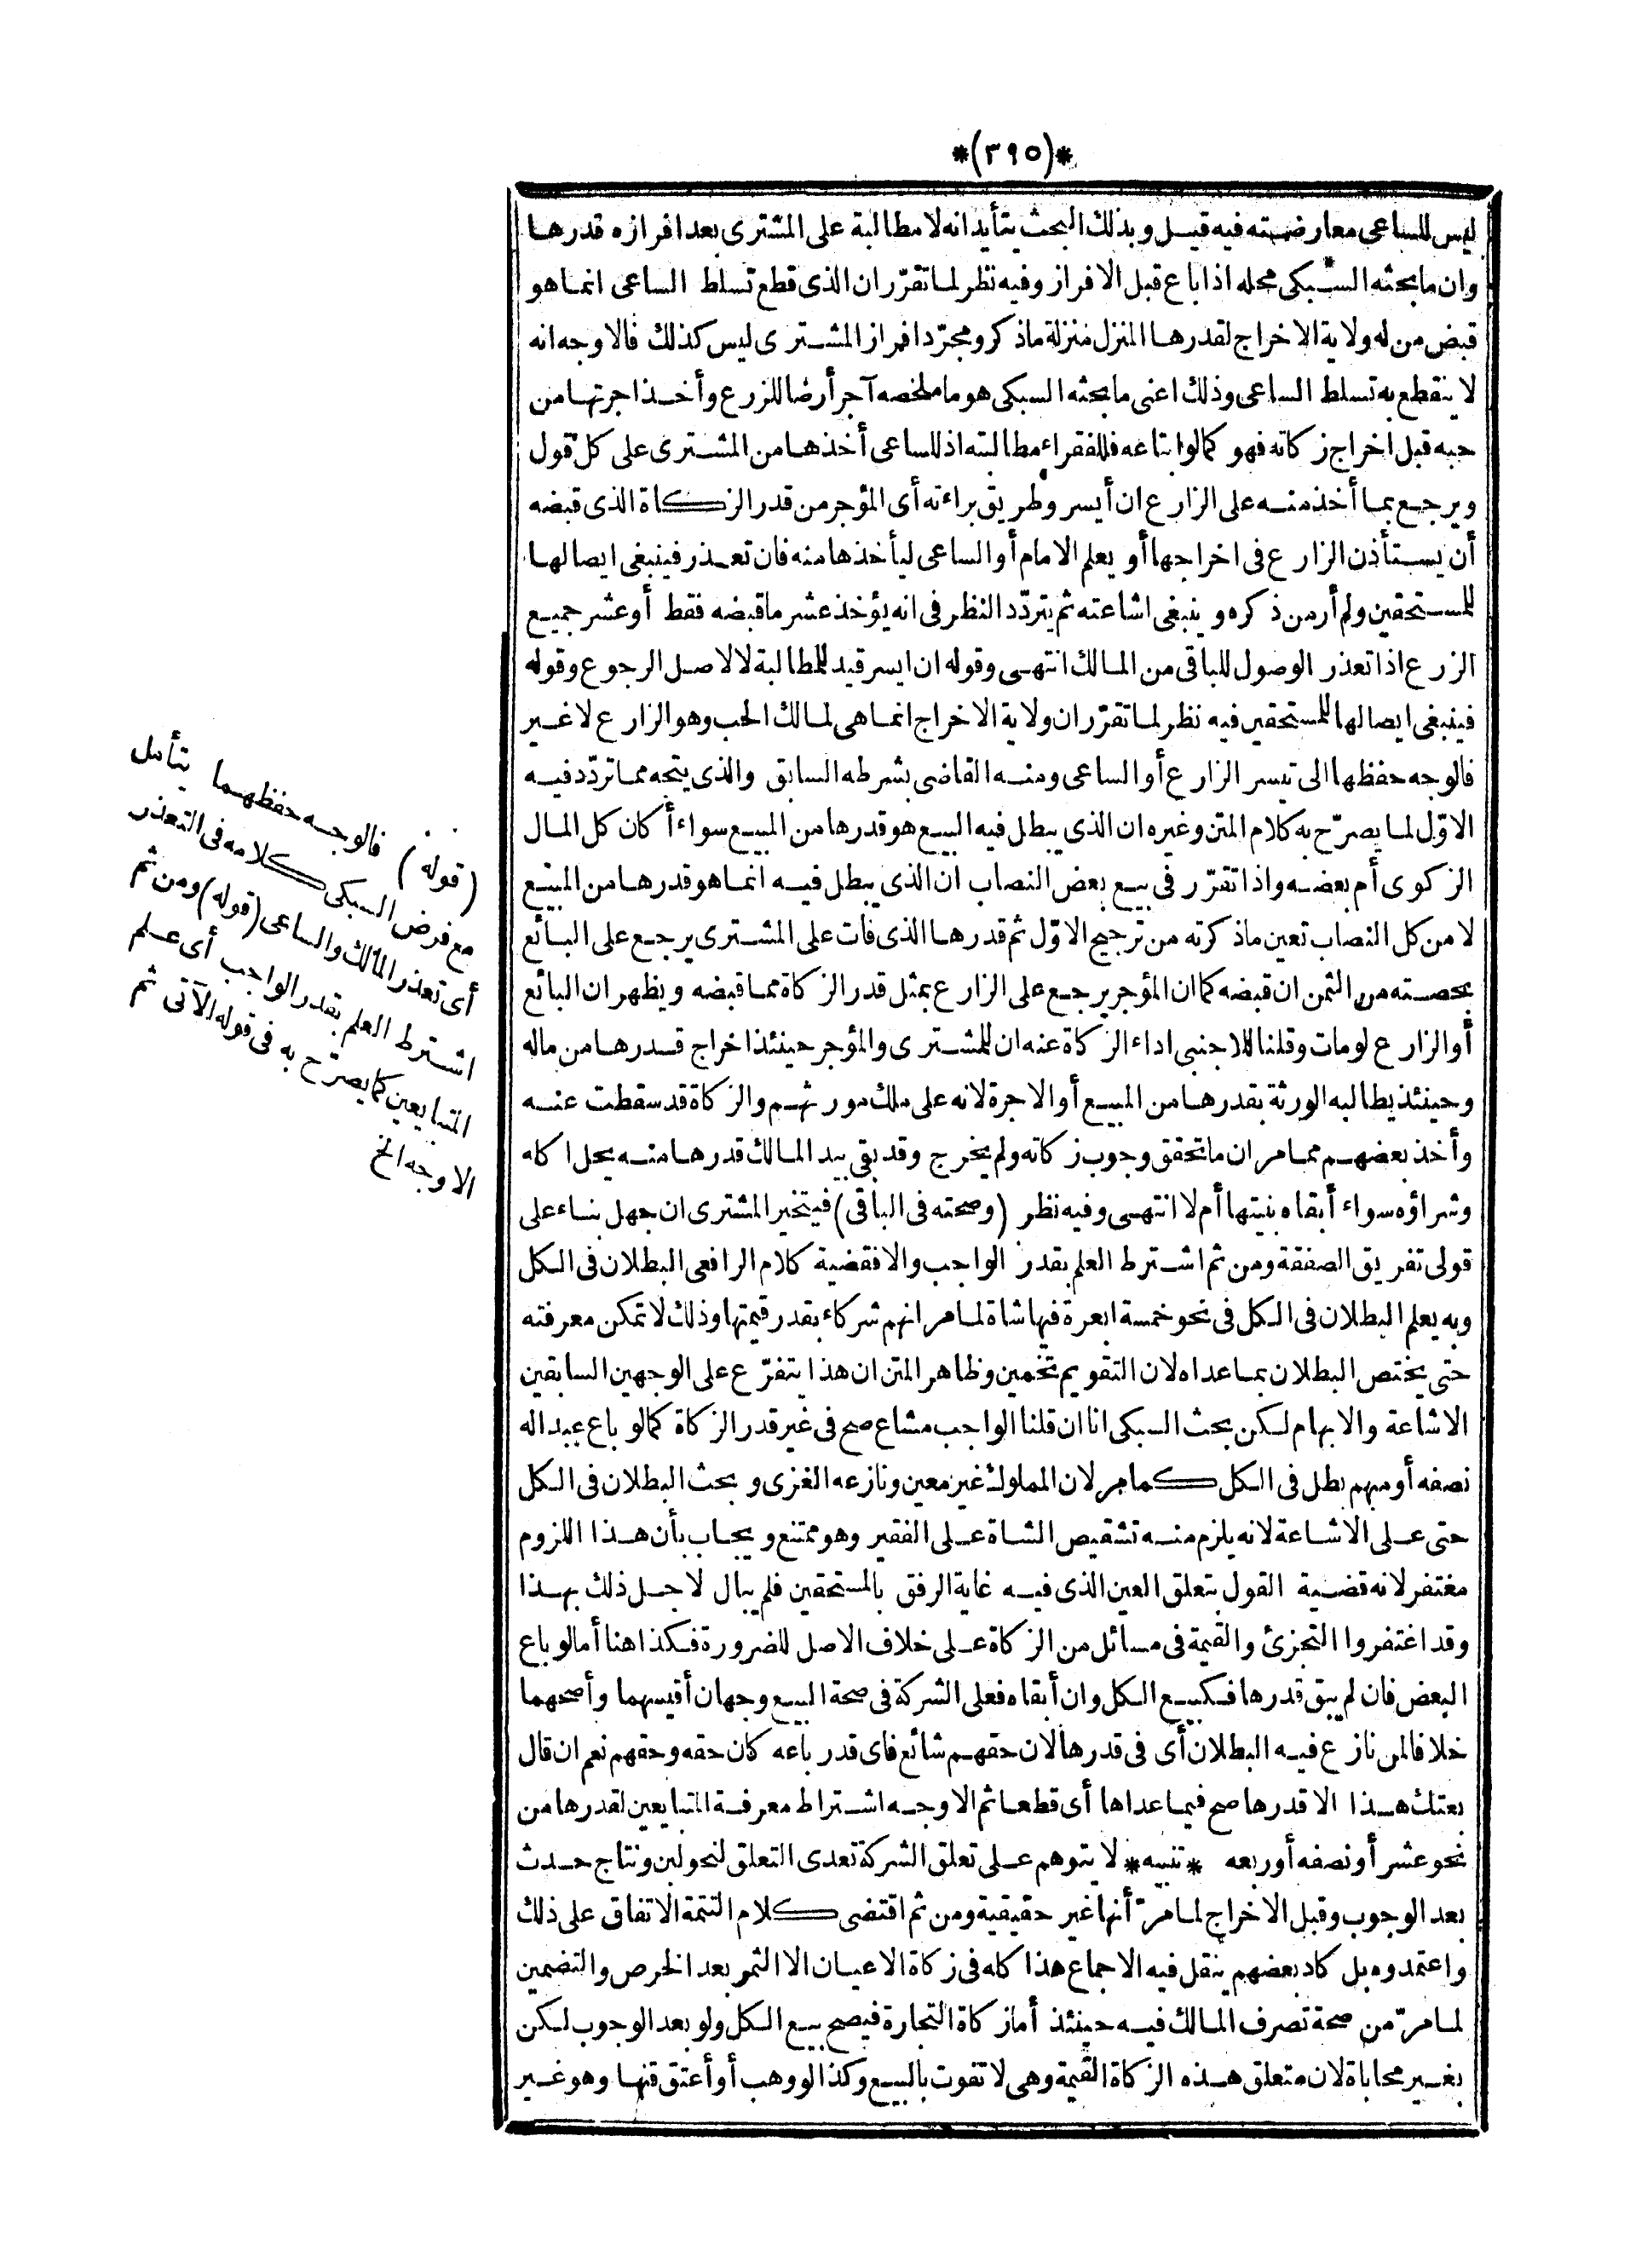 *(٣٩٥)*
ليس للساعى معارضته فيه قيل وبذلك البحث يتأيد انه لا مطالبة على المشترى بعد افرازه قدرها
وان ما بحثه السبكى محله اذا باع قبل الافراز وفيه نظر لما تقرّر ان الذى قطع تسلط الساعى انما هو
قبض من له ولاية الاخراج لقدرها المنزل منزلة ماذكر ومجرّد افراز المشترى ليس كذلك فالاوجه انه
لا ينقطع به تسلط الساعى وذلك اعنى ما بحثه السبكى هو ما ملخصه آجر أرضا للزرع وأخذ اجرتها من
حبه قبل اخراج زكاته فهو كمالوابتاعه فللفقراء مطالبته اذ للساعى أخذها من المشترى على كل قول
ويرجع بما أخذ منه على الزارع ان أيسر وطريق براءته أى المؤجر من قدر الزكاة الذى قبضه
أن يستأذن الزارع فى اخراجها أو يعلم الامام أو الساعى ليأخذها منه فان تعذر فينبغى ايصالها
للمستحقين ولم أر من ذكره وينبغى اشاعته ثم يتردّد النظر فى انه يؤخذ عشر ماقبضه فقط أو عشر جميع
الزرع اذا تعذر الوصول للباقى من المالك انتهى وقوله ان ايسر قيد للمطالبة لا لاصل الرجوع وقوله
فينبغى ايصالها للمستحقين فيه نظر لما تقرّر ان ولاية الاخراج انما هى لمالك الحب وهو الزارع لا غير
فالوجه حفظها الى تيسر الزارع أو الساعى ومنه القاضى بشرطه السابق والذى يتجه مما تردّد فيه
الاوّل لما يصرّح به كلام المتن وغيره ان الذى يبطل فيه البيع هو قدرها من المبيع سواء أكان كل المال
الزكوى أم بعضه واذا تقرّر فى بيع بعض النصاب ان الذى يبطل فيه انما هو قدرها من المبيع
لا من كل النصاب تعين ماذكرته من ترجيح الاوّل ثم قدرها الذى فات على المشترى يرجع على البائع
بحصته من الثمن ان قبضه كما ان المؤجر يرجع على الزارع بمثل قدر الزكاة مما قبضه ويظهر ان البائع
أو الزارع لو مات وقلنا للاجنبى اداء الزكاة عنه ان للمشترى والمؤجر حينئذ اخراج قدرها من ماله
وحينئذ يطالبه الورثة بقدرها من المبيع أو الاجرة لانه على ملك مورثهم والزكاة قد سقطت عنه
وأخذ بعضهم مما مر ان ما تحقق وجوب زكاته ولم يخرج وقد بقى بيد المالك قدرها منه يحل اكله
وشراؤه سواء أبقاه بنيتها أم لا انتهى وفيه نظر (وصحته فى الباقى) فيتخير المشترى ان جهل بناء على
قولى تفريق الصفقة ومن ثم اشترط العلم بقدر الواجب والا فقضية كلام الرافعى البطلان فى الكل
وبه يعلم البطلان فى الكل فى نحو خمسة ابعرة فيها شاة لما مر انهم شركاء بقدر قيمتها وذلك لا تمكن معرفته
حتى يختص البطلان بما عداه لان التقويم تخمين وظاهر المتن ان هذا يتفرّع على الوجهين السابقين
الاشاعة والابهام لكن بحث السبكى انا ان قلنا الواجب مشاع صح فى غير قدر الزكاة كما لو باع عبدا له
نصفه أو مبهم بطل فى الكل كما مر لان المملوك غير معين ونازعه الغزى وبحث البطلان فى الكل
حتى على الاشاعة لانه يلزم منه تشقيص الشاة على الفقير وهو ممتنع ويجاب بأن هذا اللزوم
مغتفر لانه قضية القول بتعلق العين الذى فيه غاية الرفق بالمستحقين فلم يبال لاجل ذلك بهذا
وقد اغتفروا التجزئ والقيمة فى مسائل من الزكاة على خلاف الاصل للضرورة فكذا هنا أما لو باع
البعض فان لم يبق قدرها فكبيع الكل وان أبقاه فعلى الشركة فى صحة البيع وجهان أقيسهما وأصحهما
خلافا لمن نازع فيه البطلان أى فى قدرها لان حقهم شائع فاى قدر باعه كان حقه وحقهم نعم ان قال
بعتك هذا الا قدرها صح فيما عداها أى قطعا ثم الاوجه اشتراط معرفة المتبايعين لقدرها من
نحو عشر أو نصفه أو ربعه *تنبيه* لا يتوهم على تعلق الشركة تعدى التعلق لنحو لبن ونتاج حدث
بعد الوجوب وقبل الاخراج لما مرّ أنها غير حقيقية ومن ثم اقتضى كلام التتمة الاتفاق على ذلك
واعتمدوه بل كاد بعضهم ينقل فيه الاجماع هذا كله فى زكاة الاعيان الا الثمر بعد الخرص والتضمين
لما مرّ من صحة تصرف المالك فيه حينئذ أما زكاة التجارة فيصح بيع الكل ولو بعد الوجوب لكن
بغير محاباة لان متعلق هذه الزكاة القيمة وهى لا تفوت بالبيع وكذا لو وهب أو أعتق قنها وهو غير
(قوله) فالوجه حفظهما يتأمل
مع فرض السبكى كلامه فى التعذر
أى تعذر المالك والساعى (قوله) ومن ثم
اشترط العلم بقدر الواجب أى علم
المتبايعين كما يصرّح به فى قوله الآتى ثم
الاوجه الخ